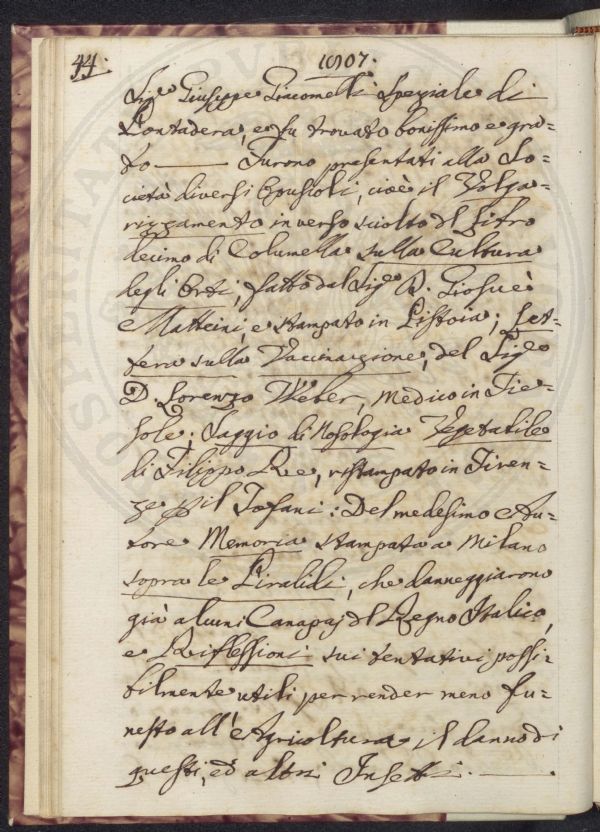 44. 1807.
Sig.e Giuseppe Giacomelli Speziale di
Pontadera, e fu trovato bonissimo e gra=
to —— Furono presentati alla So=
cietà diversi Opuscoli, cioè il Volga=
rizzamento in verso sciolto del Libro
decimo di Columella sulla Cultura
degli Orti, fatto dal Sig.e D. Giosuè
Matteini, e stampato in Pistoia; Let=
tera sulla Vaccinazione, del Sig.e
D. Lorenzo Weber, Medico in Fie=
sole; Saggio di Nosologia Vegetabile
di Filippo Re, ristampato in Firen=
ze p il Tofani: Del medesimo Au=
tore Memoria stampata a Milano
sopra le Piralidi, che danneggiarono
già alcuni Canapaj del Regno Italico,
e Riflessioni sui tentativi possi=
bilmente utili per render meno fu=
nesto all'Agricoltura il danno di
questi, ed altri Insetti. ——